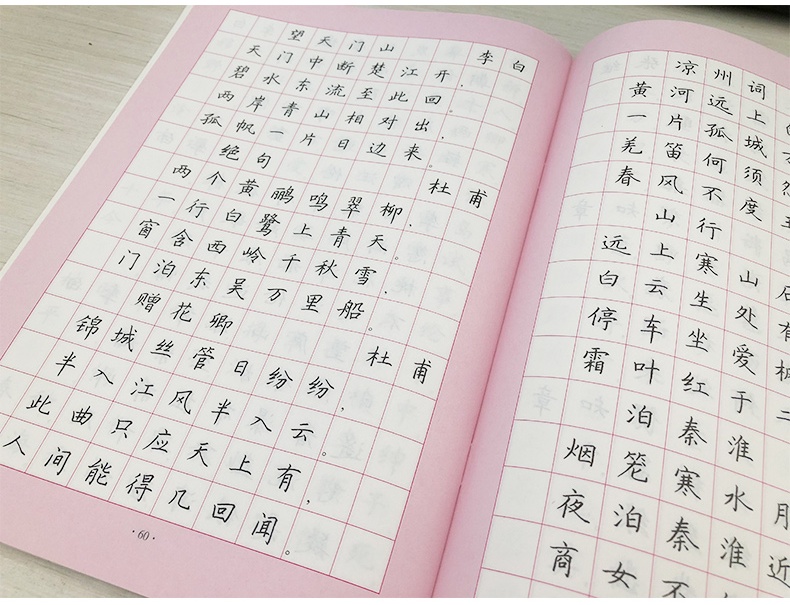 望天门山 李白
天门中断楚江开，
碧水东流至此回。
两岸青山相对出，
孤帆一片日边来。
绝句 杜甫
两个黄鹂鸣翠柳，
一行白鹭上青天。
窗含西岭千秋雪，
门泊东吴万里船。
赠花卿 杜甫
锦城丝管日纷纷，
半入江风半入云。
此曲只应天上有，
人间能得几回闻。
·60·
凉州词
黄河远上
一片孤城万
羌笛何须怨
春风不度玉
山行
远上寒山石
白云生处有
停车坐爱枫
霜叶红于二
泊秦淮
烟笼寒水月
夜泊秦淮近
商女不